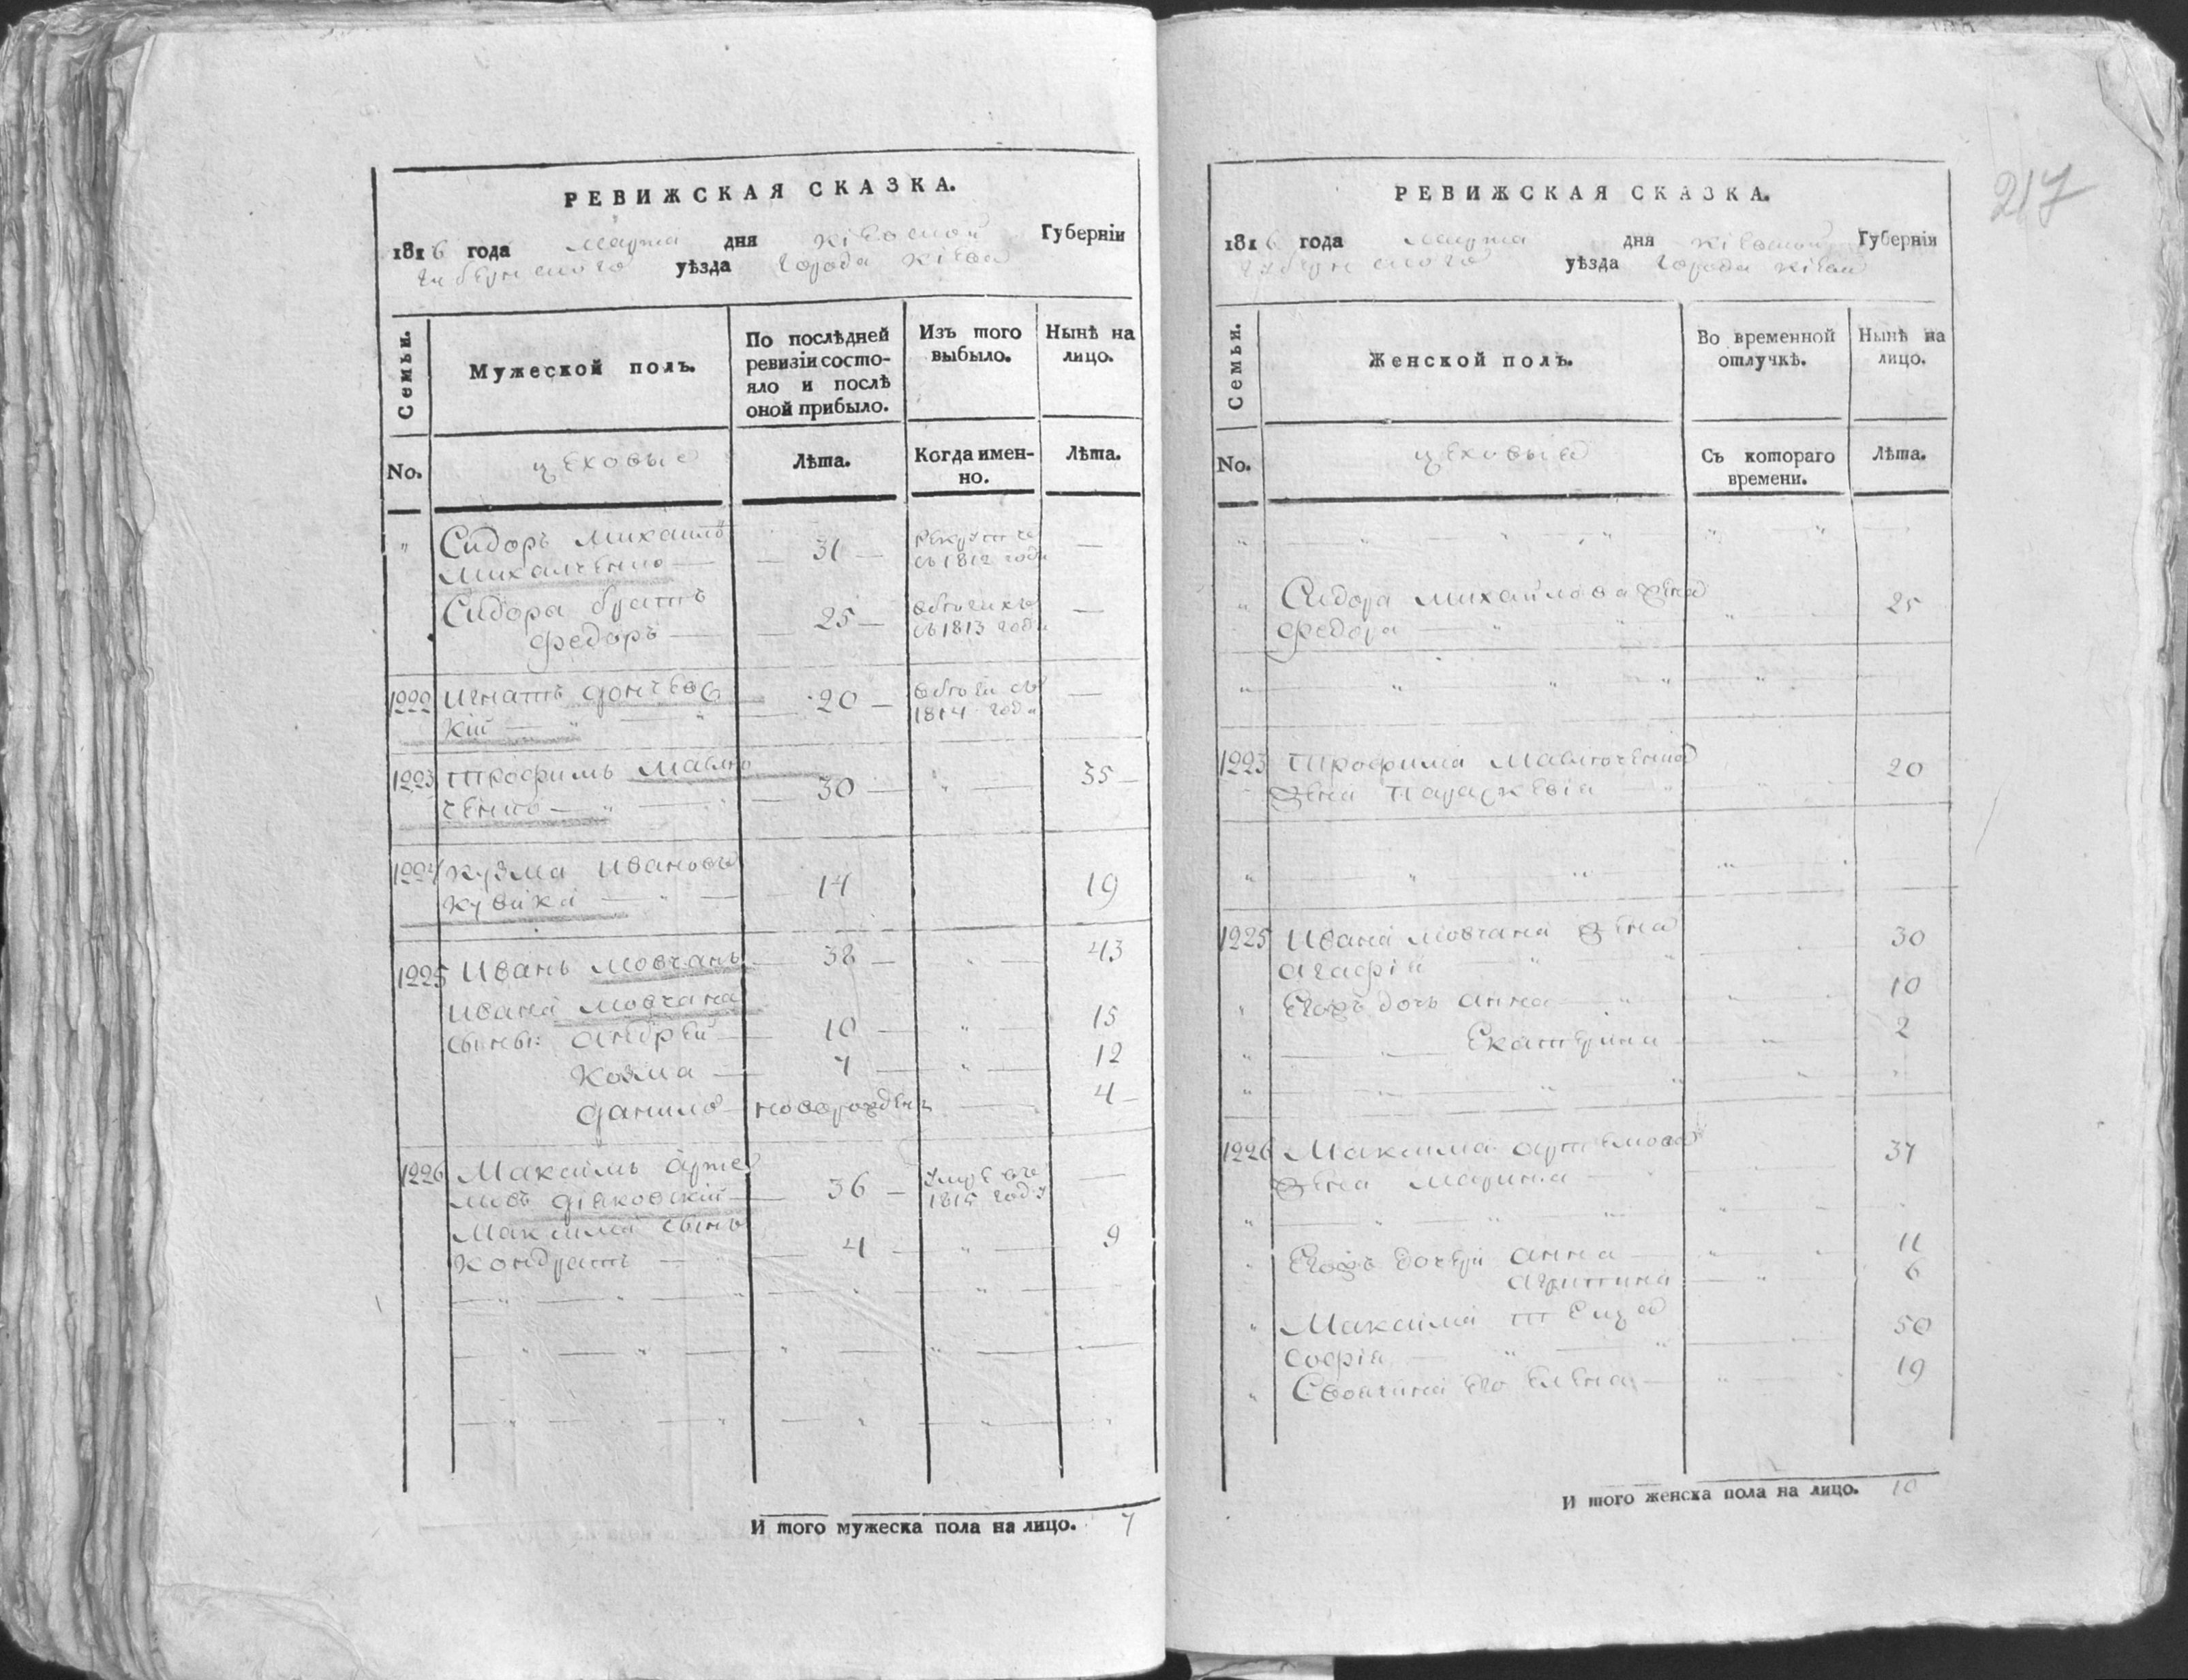 РЕВИЖСКАЯ СКАЗКА.
1816 года марта дня кіевской Губерніи
уѣзда города кіева
Семьи.
Мужеской полъ.
По послѣдней
ревизіи состо-
яло и послѣ
оной прибыло.
Изъ того
выбыло.
Нынѣ на
лицо.
No.
цеховые
Лѣта.
Когда имен-
но.
Лѣта.
Сидоръ михаилъ 31 —
Михалченко съ 1812 года
Сидора братъ 25 —
федоръ — съ 1813 года
1222 игнатъ дончевс 20 —
кій 1814 года
1223 трофимъ Мавлю 30 — 35
ченко
1224 кузма ивановъ 14 19
1225 иванъ мовчанъ 38 — 43
ивана мовчана
сыны: андрей — 10 — 15
козма — 7 — 12
данило — новорожденъ 4
1226 Максимъ арте 36 — умре въ
мовъ діаковскій 1815 году
Максима сынъ 4 — 9
кондратъ —
И того мужеска пола на лицо. 7
217
РЕВИЖСКАЯ СКАЗКА.
1816 года марта дня кіевской Губерніи
уѣзда города кіева
Семьи.
Женской полъ.
Во временной
отлучкѣ.
Нынѣ на
лицо.
No.
цеховые
Съ котораго
времени.
Лѣта.
Сидора михайлова жена 25
федора
1223 трофима Мавлюченка 20
жена параскевія
1225 ивана мовчана жена 30
агафія
Егожъ дочь анна 10
Екатерина 2
1226 Максима артемова 37
жена марина
Егожъ дочери анна 11
агрипина 6
Максима теща 50
софія
Своячина его елена 19
И того женска пола на лицо. 10